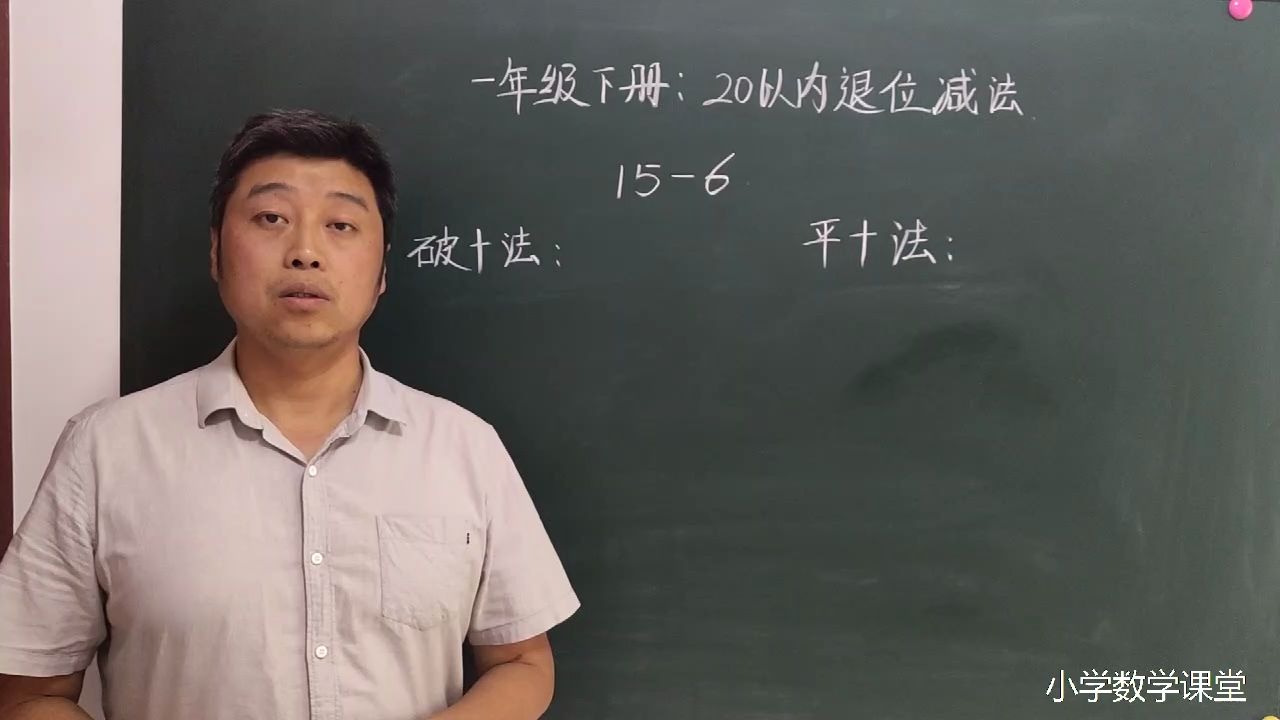 一年级下册：20以内退位减法
15-6
破十法：
平十法：
小学数学课堂